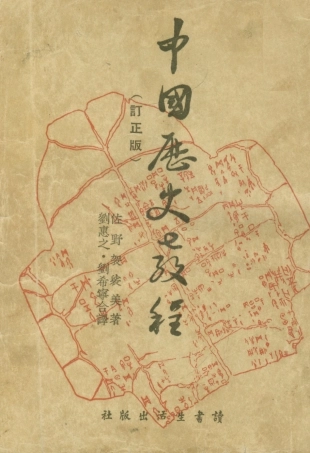 中國歷史教程
(訂正版)
佐野袈裟美著
劉惠之·劉希寧合譯
讀書生活出版社